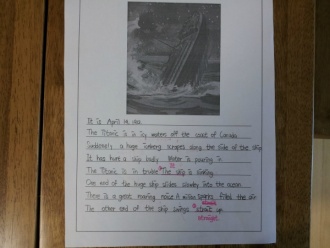 It is April 14, 1912.
The Titanic is in icy waters off the coast of Canada.
Suddenly a huge iceberg scrapes along the side of the ship.
It has hurt a ship body. Water is pouring in.
The Titanic is in trouble. The ship is sinking.
One end of the huge ship slides slowly into the ocean.
There is a great roaring noise. A million sparks fill the air.
The other end of the ship swings straight up
straight